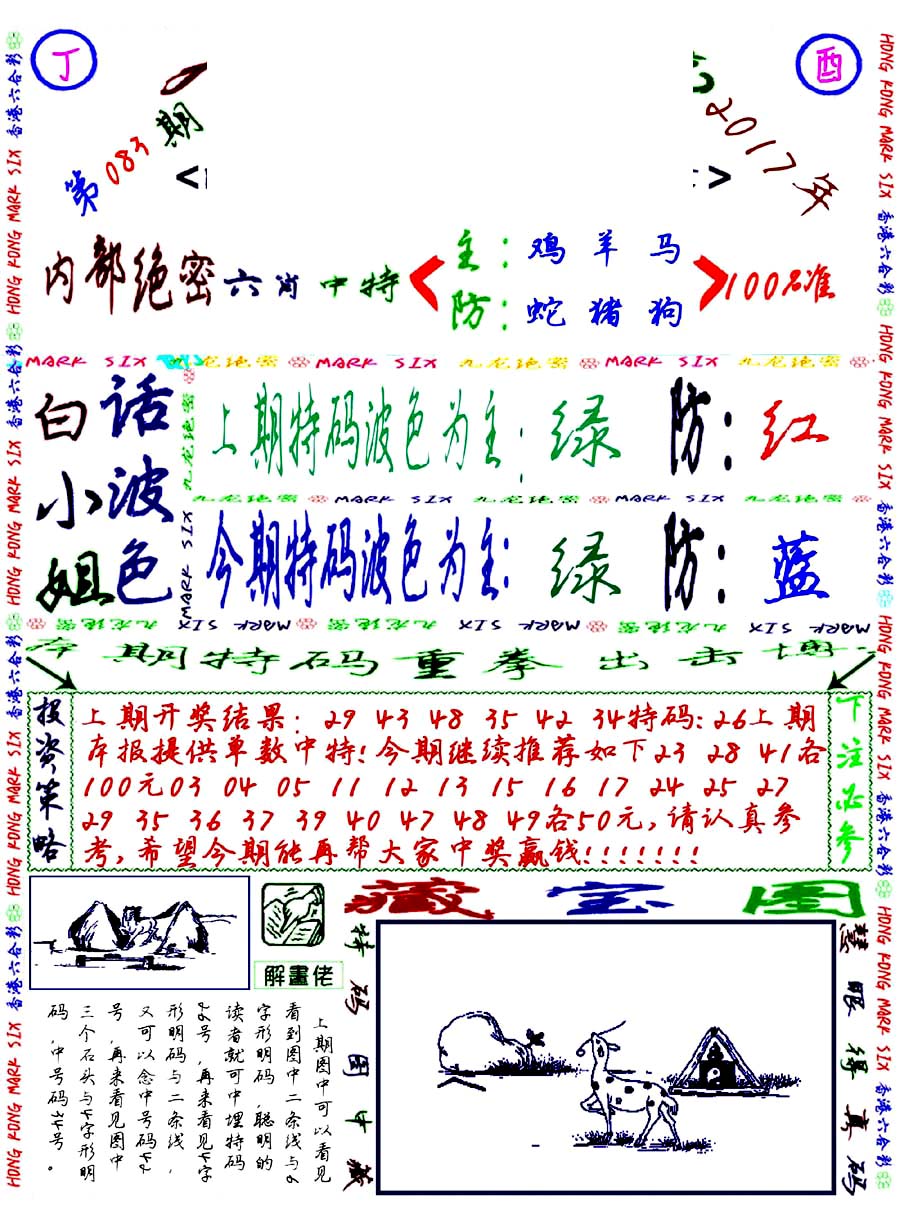 丁
酉
第083期
2017年
< >
内部绝密六肖中特
主：鸡 羊 马
防：蛇 猪 狗
100%准
MARK SIX 九龙绝密 MARK SIX 九龙绝密 MARK SIX 九龙绝密
白话小波姐色
上期特码波色为主：绿 防：红
九龙绝密 MARK SIX 九龙绝密 MARK SIX 九龙绝密
今期特码波色为主：绿 防：蓝
MARK SIX 九龙绝密 MARK SIX 九龙绝密 MARK SIX 九龙绝密
本期特码重拳出击博
投资策略
上期开奖结果：29 43 48 35 42 34特码：26上期
本报提供单数中特！今期继续推荐如下23 28 41各
100元03 04 05 11 12 13 15 16 17 24 25 27
29 35 36 37 39 40 47 48 49各50元，请认真参
考，希望今期能再帮大家中奖赢钱！！！！！！！
下注必参
藏宝图
解畫佬
上期图中可以看见
看到图中二条线与6
字形明码，聪明的
读者就可中埋特码
26号，再来看见4字
形明码与二条线，
又可以念中号码42
号，再来看见图中
三个石头与4字形明
码，中号码34号。
特码图中藏
慧眼得真码
HONG KONG MARK SIX 香港六合彩
HONG KONG MARK SIX 香港六合彩